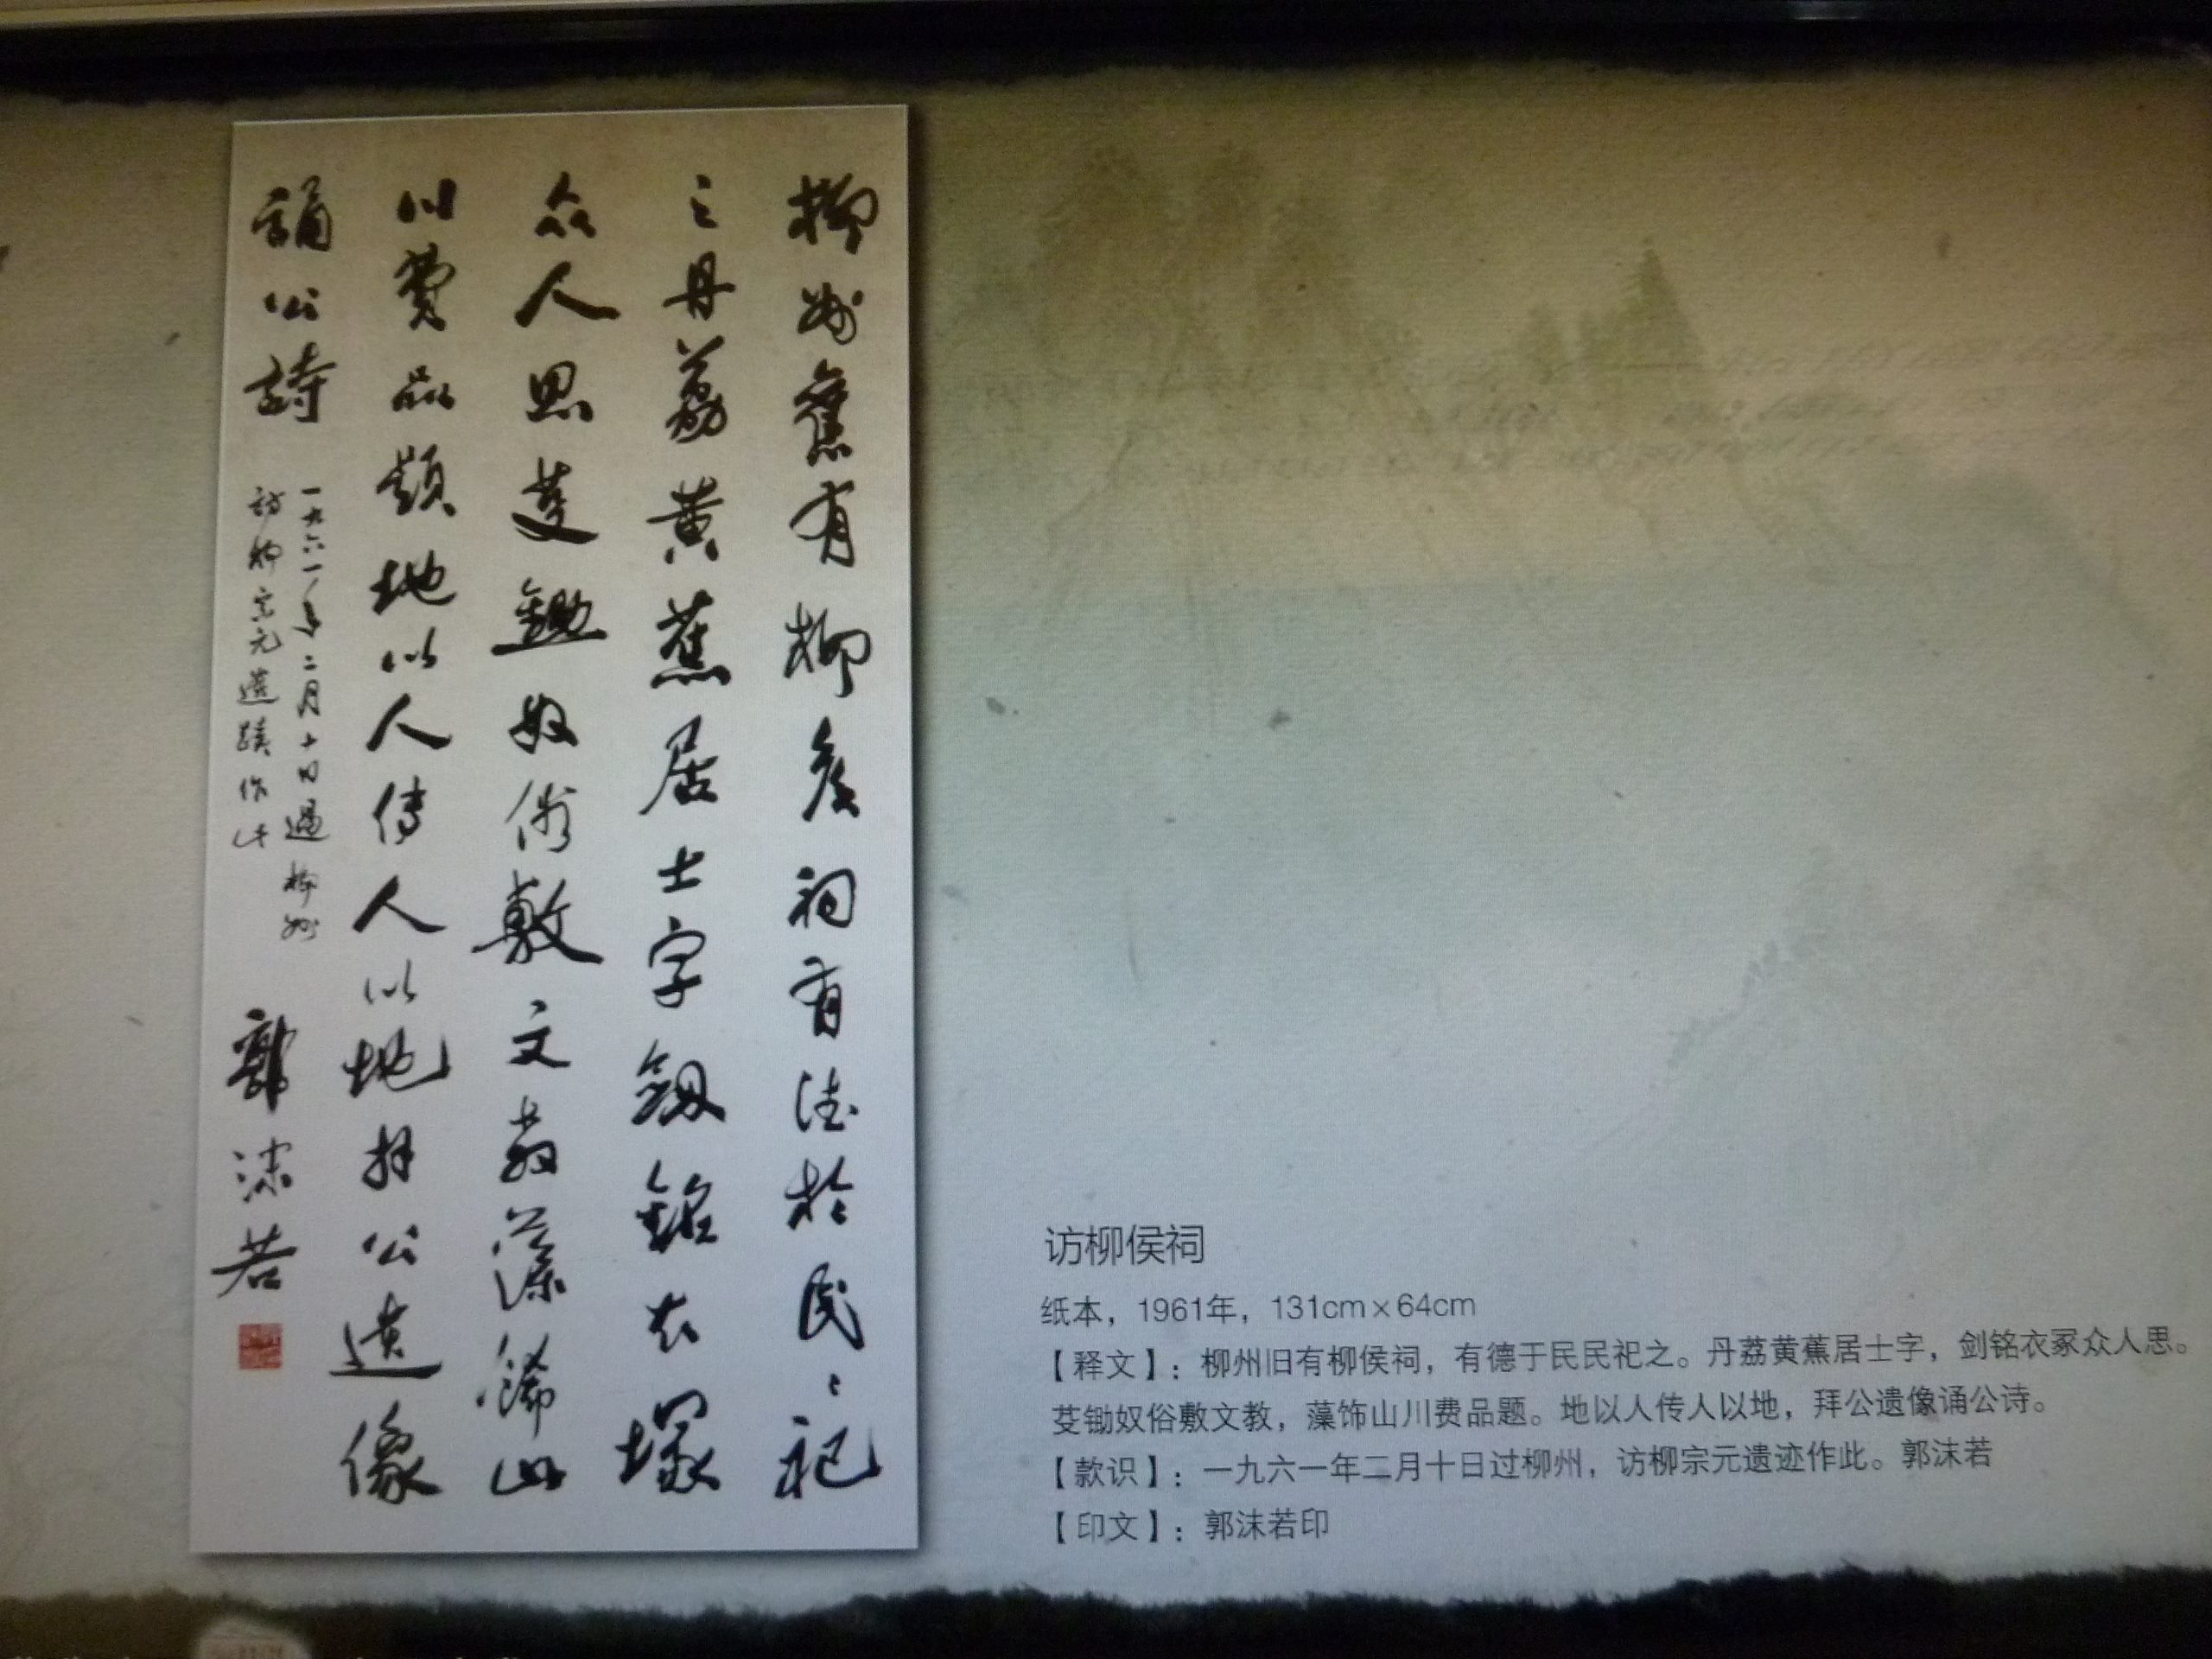 柳州舊有柳侯祠有德於民〻祀
之丹荔黄蕉居士字劔銘衣塚
众人思芟鋤奴俗敷文教藻餙山
川費品題地以人传人以地拜公遺像
誦公詩
一九六一年二月十日過柳州
訪柳宗元遺蹟作此
郭沫若
访柳侯祠
纸本，1961年，131cm×64cm
【释文】：柳州旧有柳侯祠，有德于民民祀之。丹荔黄蕉居士字，剑铭衣冢众人思。
芟锄奴俗敷文教，藻饰山川费品题。地以人传人以地，拜公遗像诵公诗。
【款识】：一九六一年二月十日过柳州，访柳宗元遗迹作此。郭沫若
【印文】：郭沫若印